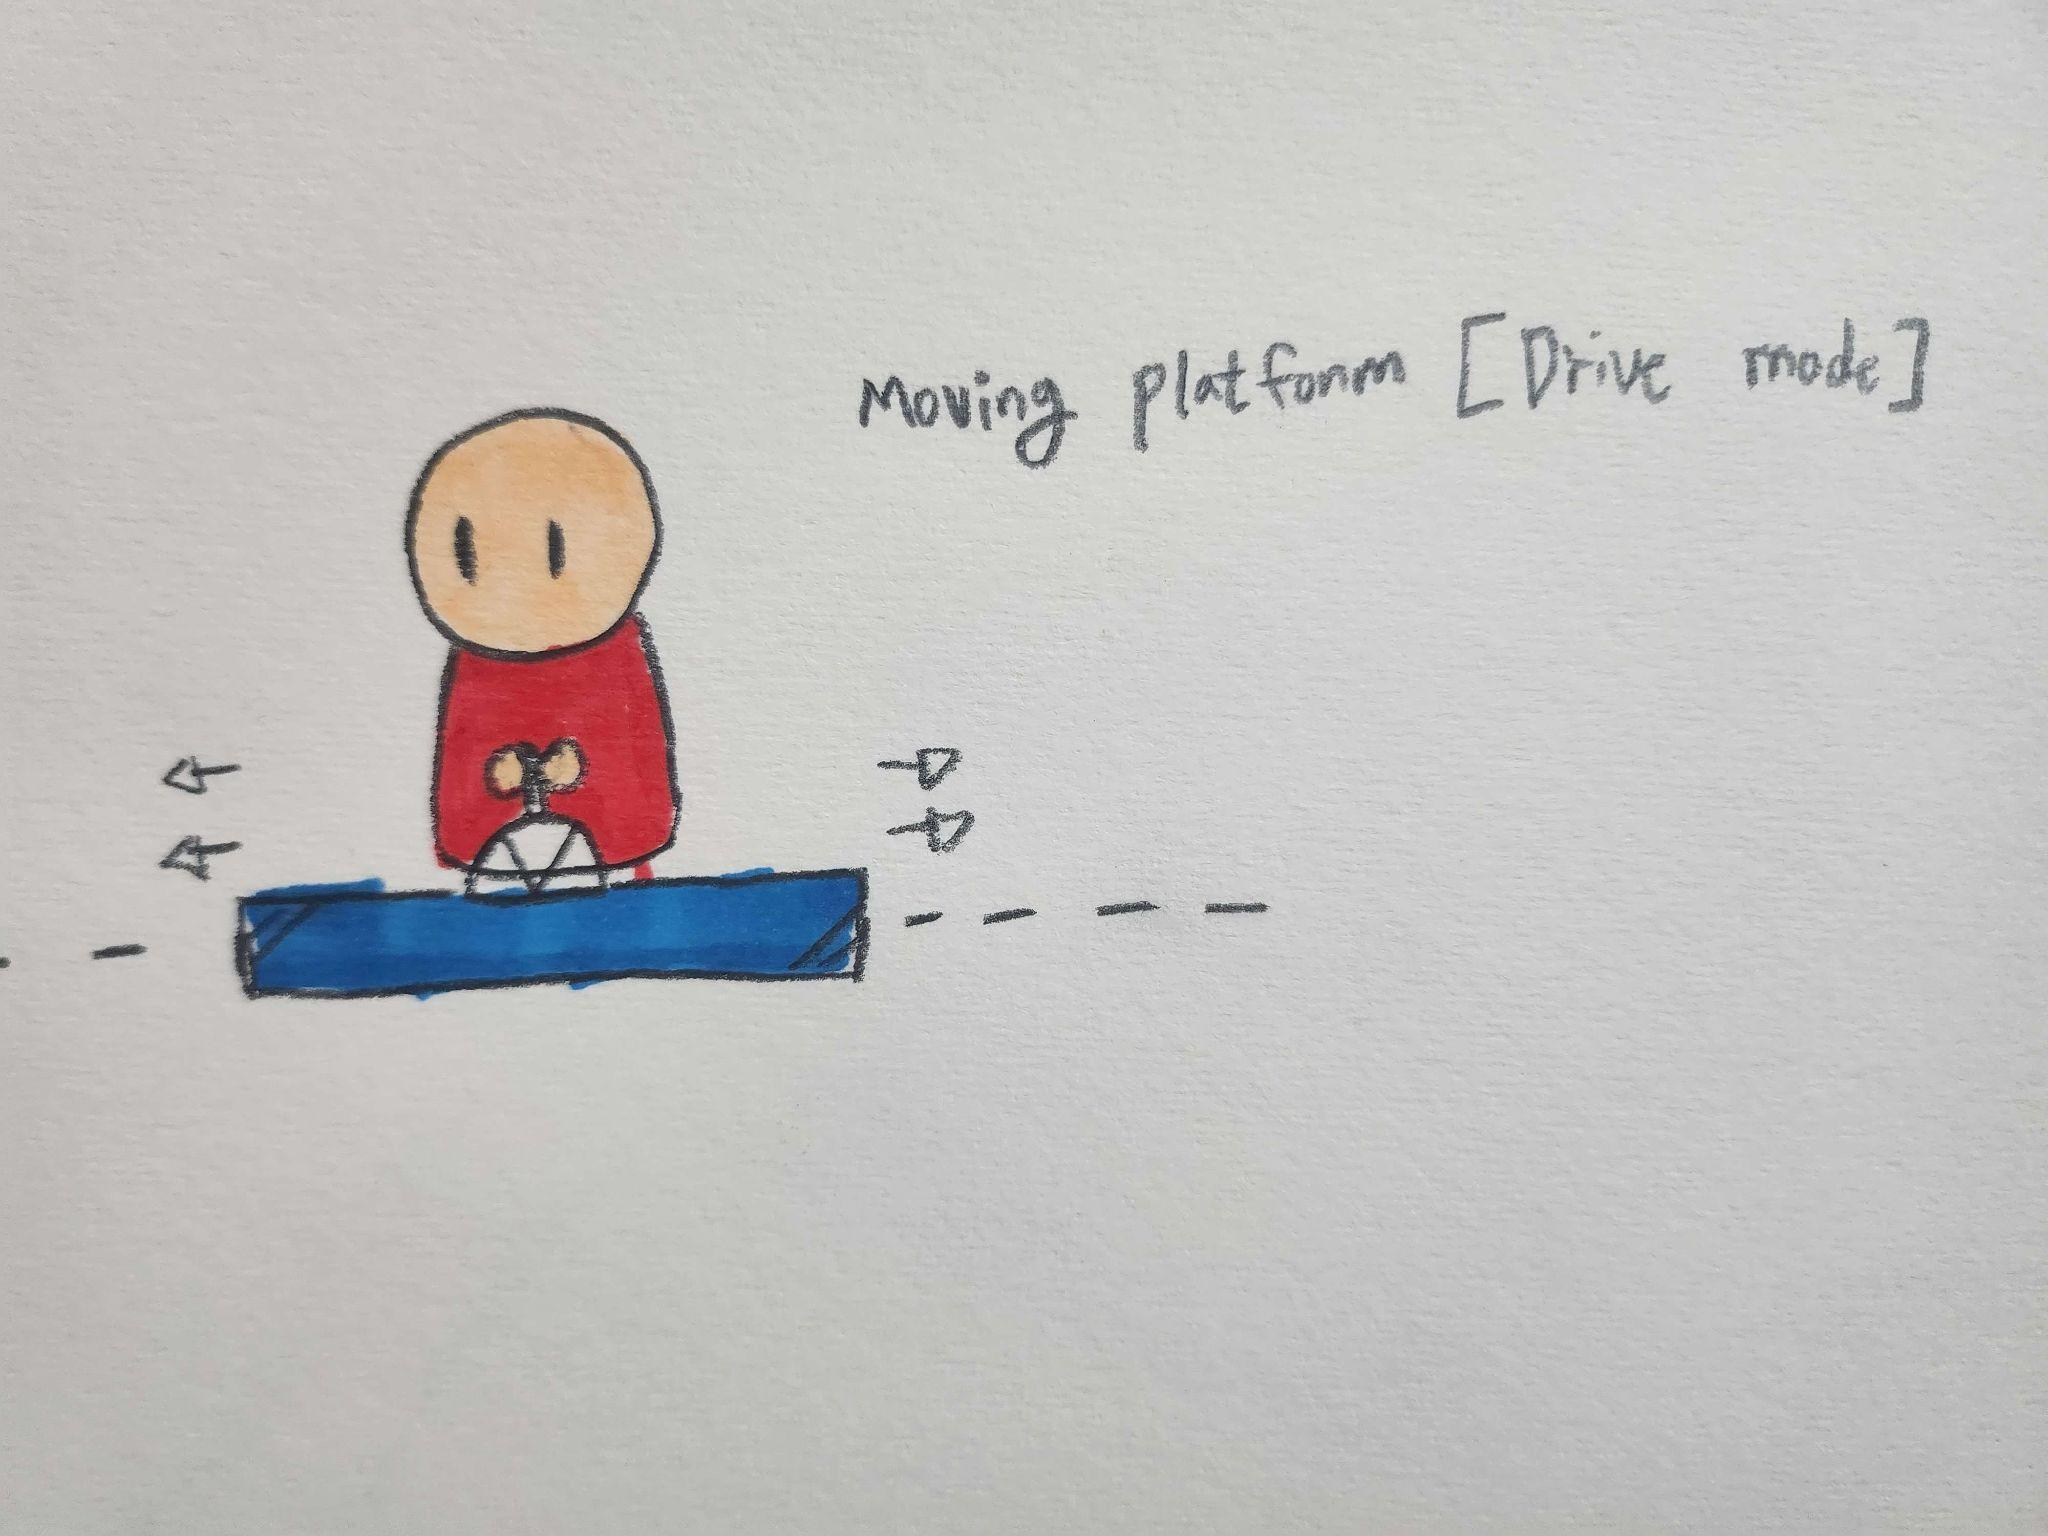 Moving platform [Drive mode]